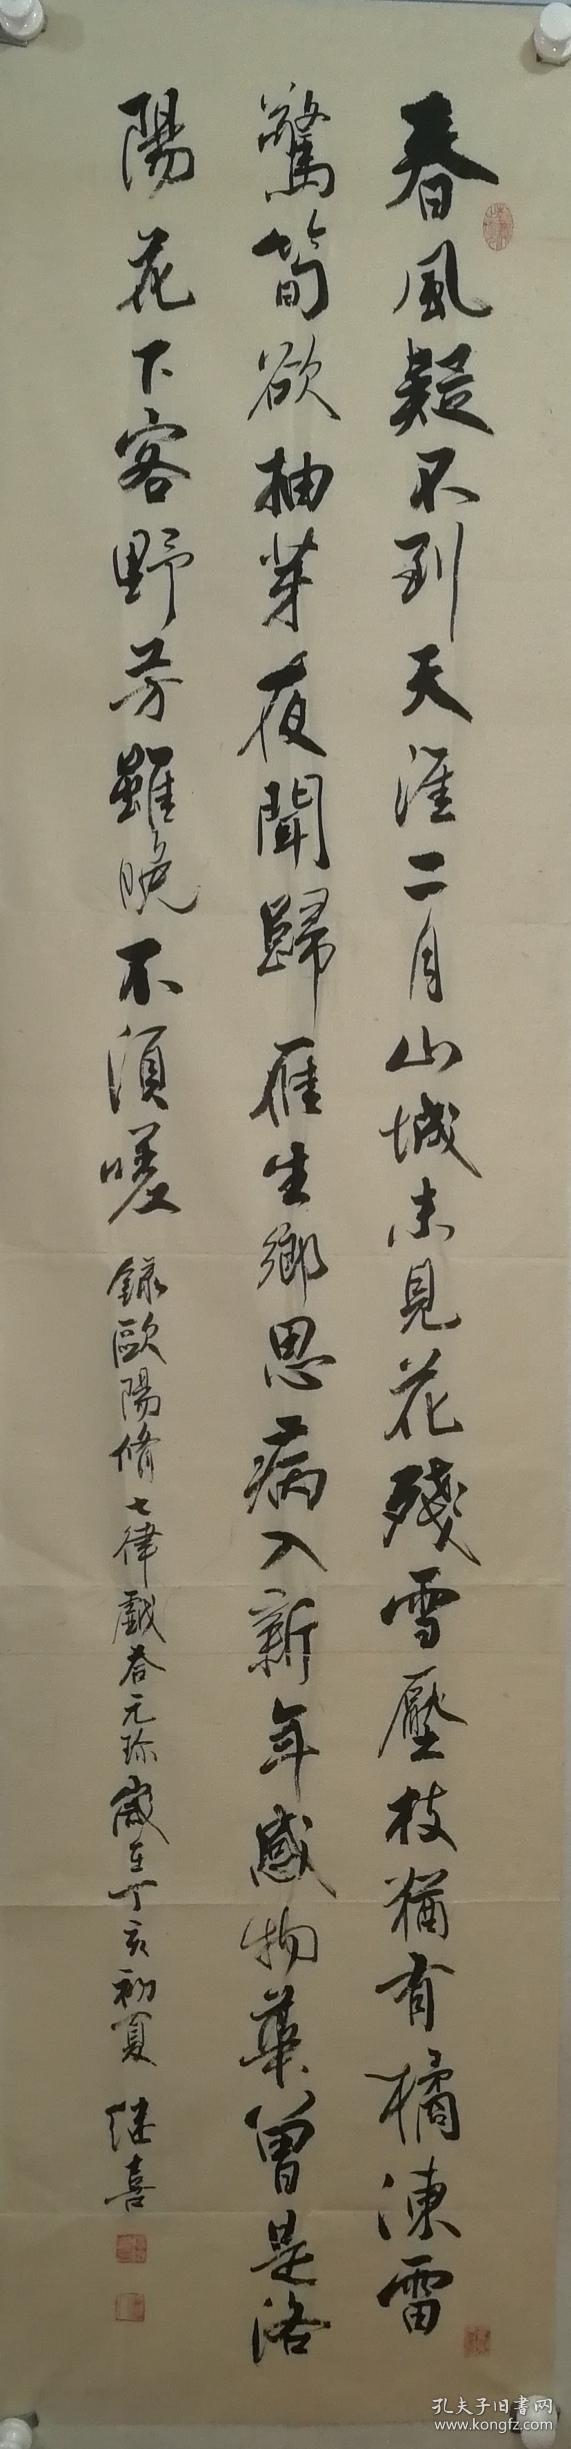 春風疑不到天涯二月山城未見花殘雪壓枝猶有橘凍雷
驚筍欲抽芽夜聞歸雁生鄉思病入新年感物華曾是洛
陽花下客野芳雖晚不須嗟
錄歐陽脩七律戲答元珍歲在丁亥初夏 继喜
孔夫子旧书网
www.kongfz.com